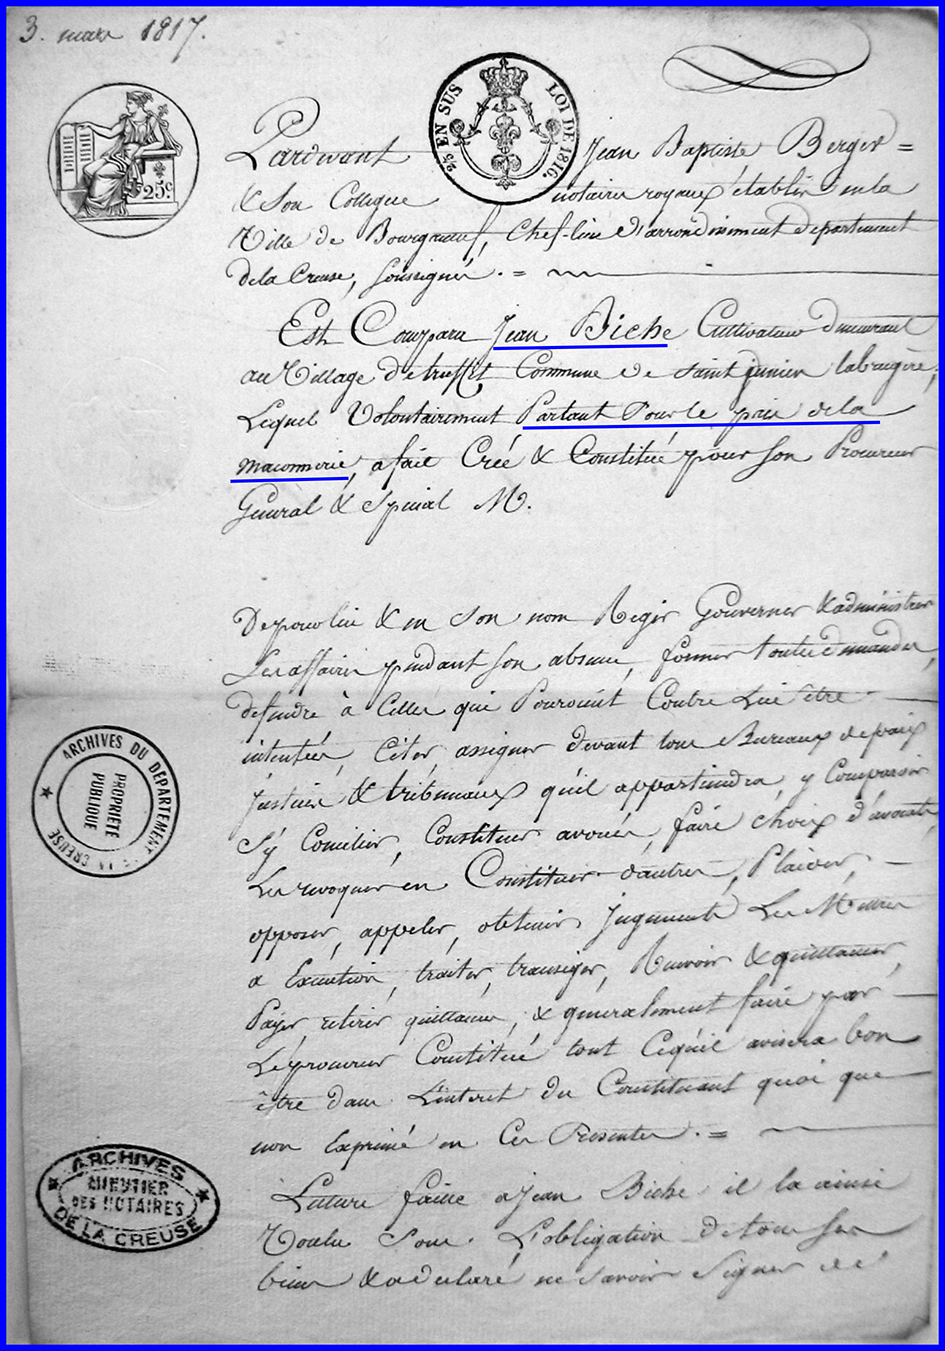 3. mars 1817.
25 EN SUS
LOI DE 1816.
25c
Pardevant Jean Baptiste Berger =
& Son Collegue notaires royaux établis en la
Ville de Bourganeuf, Chef-lieu d'arrondissement departement
de la Creuse, soussignés. =
Est Comparu Jean Biche Cultivateur demeurant
au Village de Commune de Saint junien labrugère,
Lequel Volontairement Partant Pour le païs de la
maconnerie, a fait Créé & Constitué pour son Procureur
General & Special M.
De pour lui & en son nom Regir Gouverner & administrer
Ses affaires pendant son absence, former toutes demandes,
defendre à Celles qui Pouroient Contre Lui être
intentées, Citer, assigner devant tous Bureaux de paix
justices & tribunaux qu'il appartiendra, y Comparoir
S'y Concilier, Constituer avoués, faire choix d'avocats
Les revoquer en Constituer d'autres, Plaider,
opposer, appeler, obtenir Jugements Les Mettre
a Execution, traiter, transiger, Recevoir & quittancer,
Payer retirer quittances, & generalement faire par
Le procureur Constitué tout Cequ'il avisera bon
être dans L'interet du Constituant quoi que
non Exprimé en Ces Presentes. =
Lecture faitte a Jean Biche il la ainsi
Voulu Sous L'obligation de tous ses
biens & a declaré ne savoir Signer de
ARCHIVES DU DÉPARTEMENT DE LA CREUSE
PROPRIÉTÉ
PUBLIQUE
ARCHIVES
MINUTIER
DES NOTAIRES
DE LA CREUSE